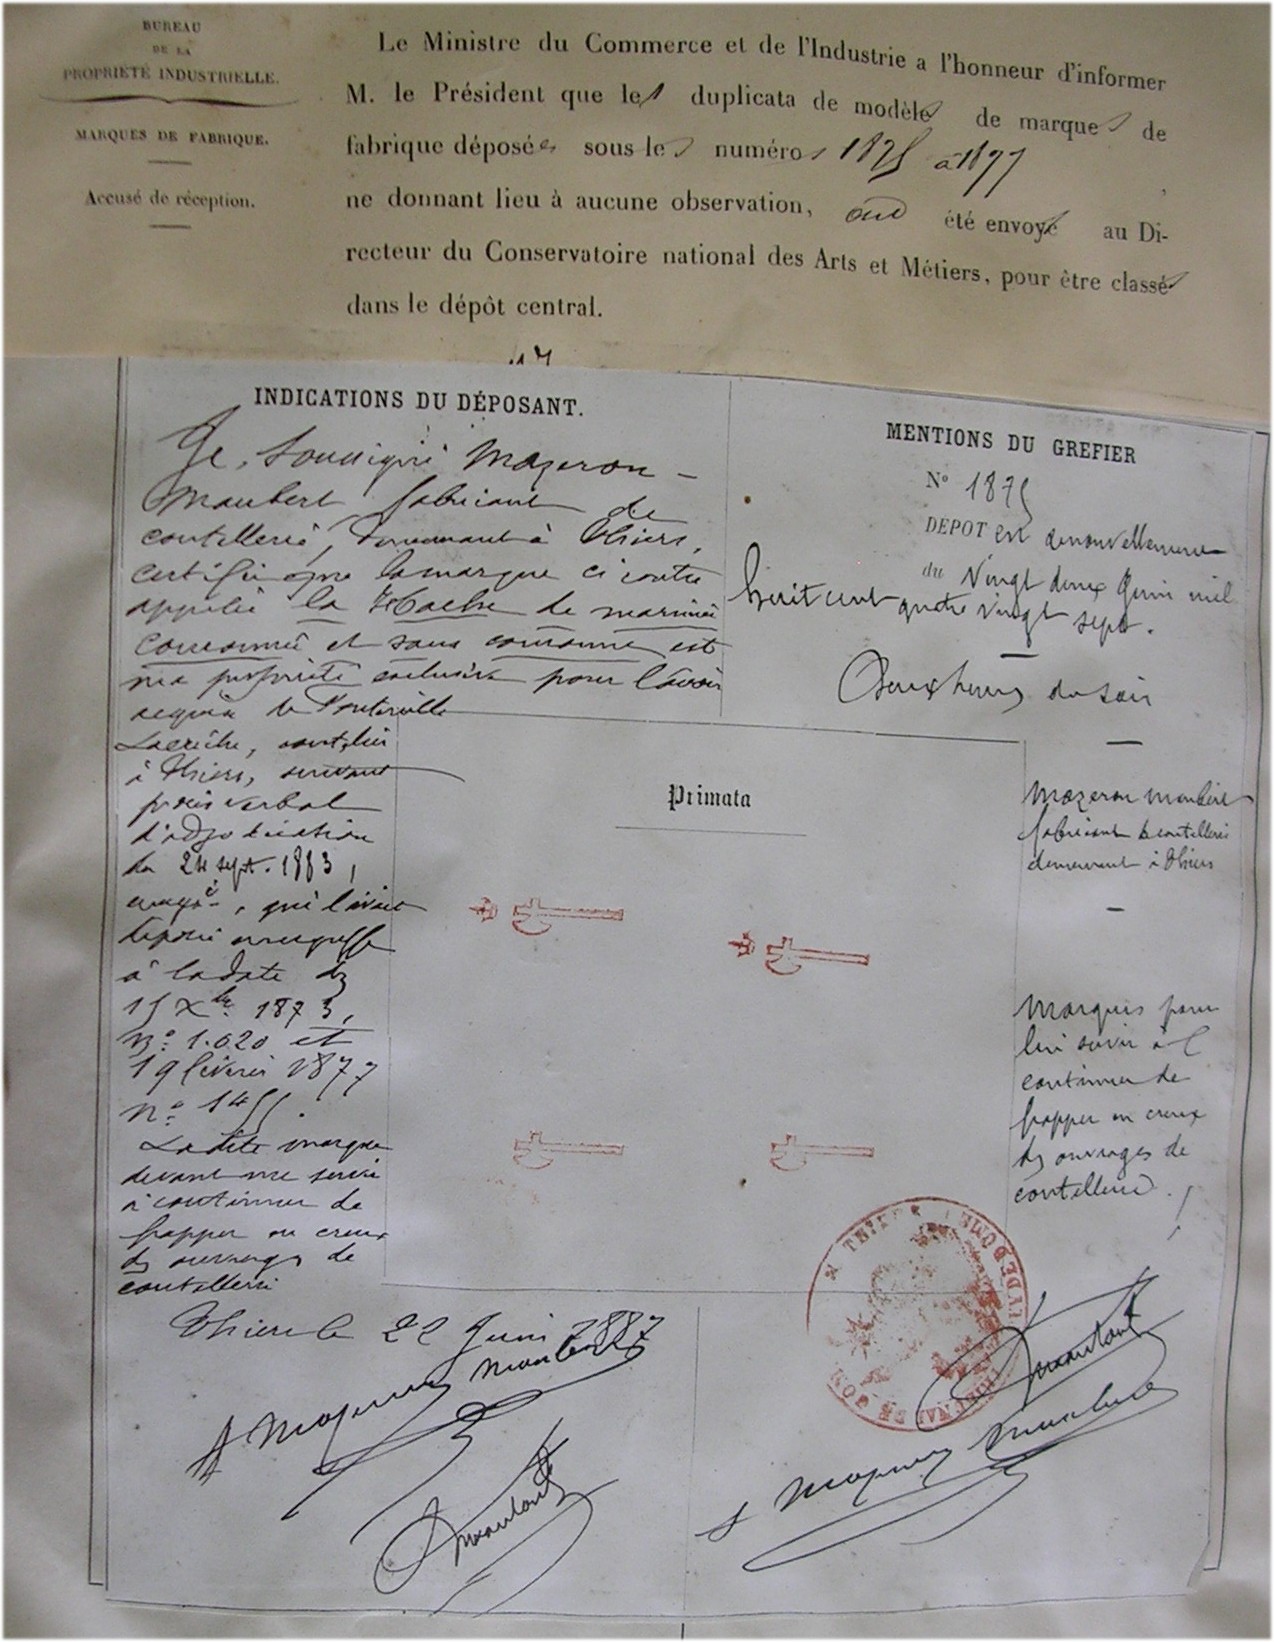 BUREAU
DE LA
PROPRIÉTÉ INDUSTRIELLE.
MARQUES DE FABRIQUE.
Accusé de réception.
Le Ministre du Commerce et de l'Industrie a l'honneur d'informer
M. le Président que les duplicata de modèles de marques de
fabrique déposés sous les numéros 1875 à 1877
ne donnant lieu à aucune observation, ont été envoyés au Di-
recteur du Conservatoire national des Arts et Métiers, pour être classés
dans le dépôt central.
INDICATIONS DU DÉPOSANT.
Je, soussigné Mazeron-
Maubert fabricant de
coutellerie, demeurant à Thiers,
certifie que la marque ci contre
appelée la Hache de marine
couronnée et sans couronne est
ma propriété exclusive pour l'avoir
acquise de
coutelier
à Thiers, suivant
procès verbal
d'adjudication
du 24 sept. 1883,
qui l'avait
déposée au greffe
à la date du
15 Xbre 1873,
no 1.020 et
19 février 1877
no 1455.
La dite marque
devant me servir
à continuer de
frapper en creux
des ouvrages de
coutellerie
Thiers le 22 Juin 1887
Mazeron Maubert
MENTIONS DU GREFIER
No 1875
DÉPOT en renouvellement
du Vingt deux Juin mil
huit cent quatre vingt sept.
Deux heures du soir
Primata
Mazeron Maubert
fabricant de coutellerie
demeurant à Thiers
Marques pour
lui servir à
continuer de
frapper en creux
des ouvrages de
coutellerie.
THIERS
PUY DE DOME
TRIBUNAL DE COM
Mazeron Maubert